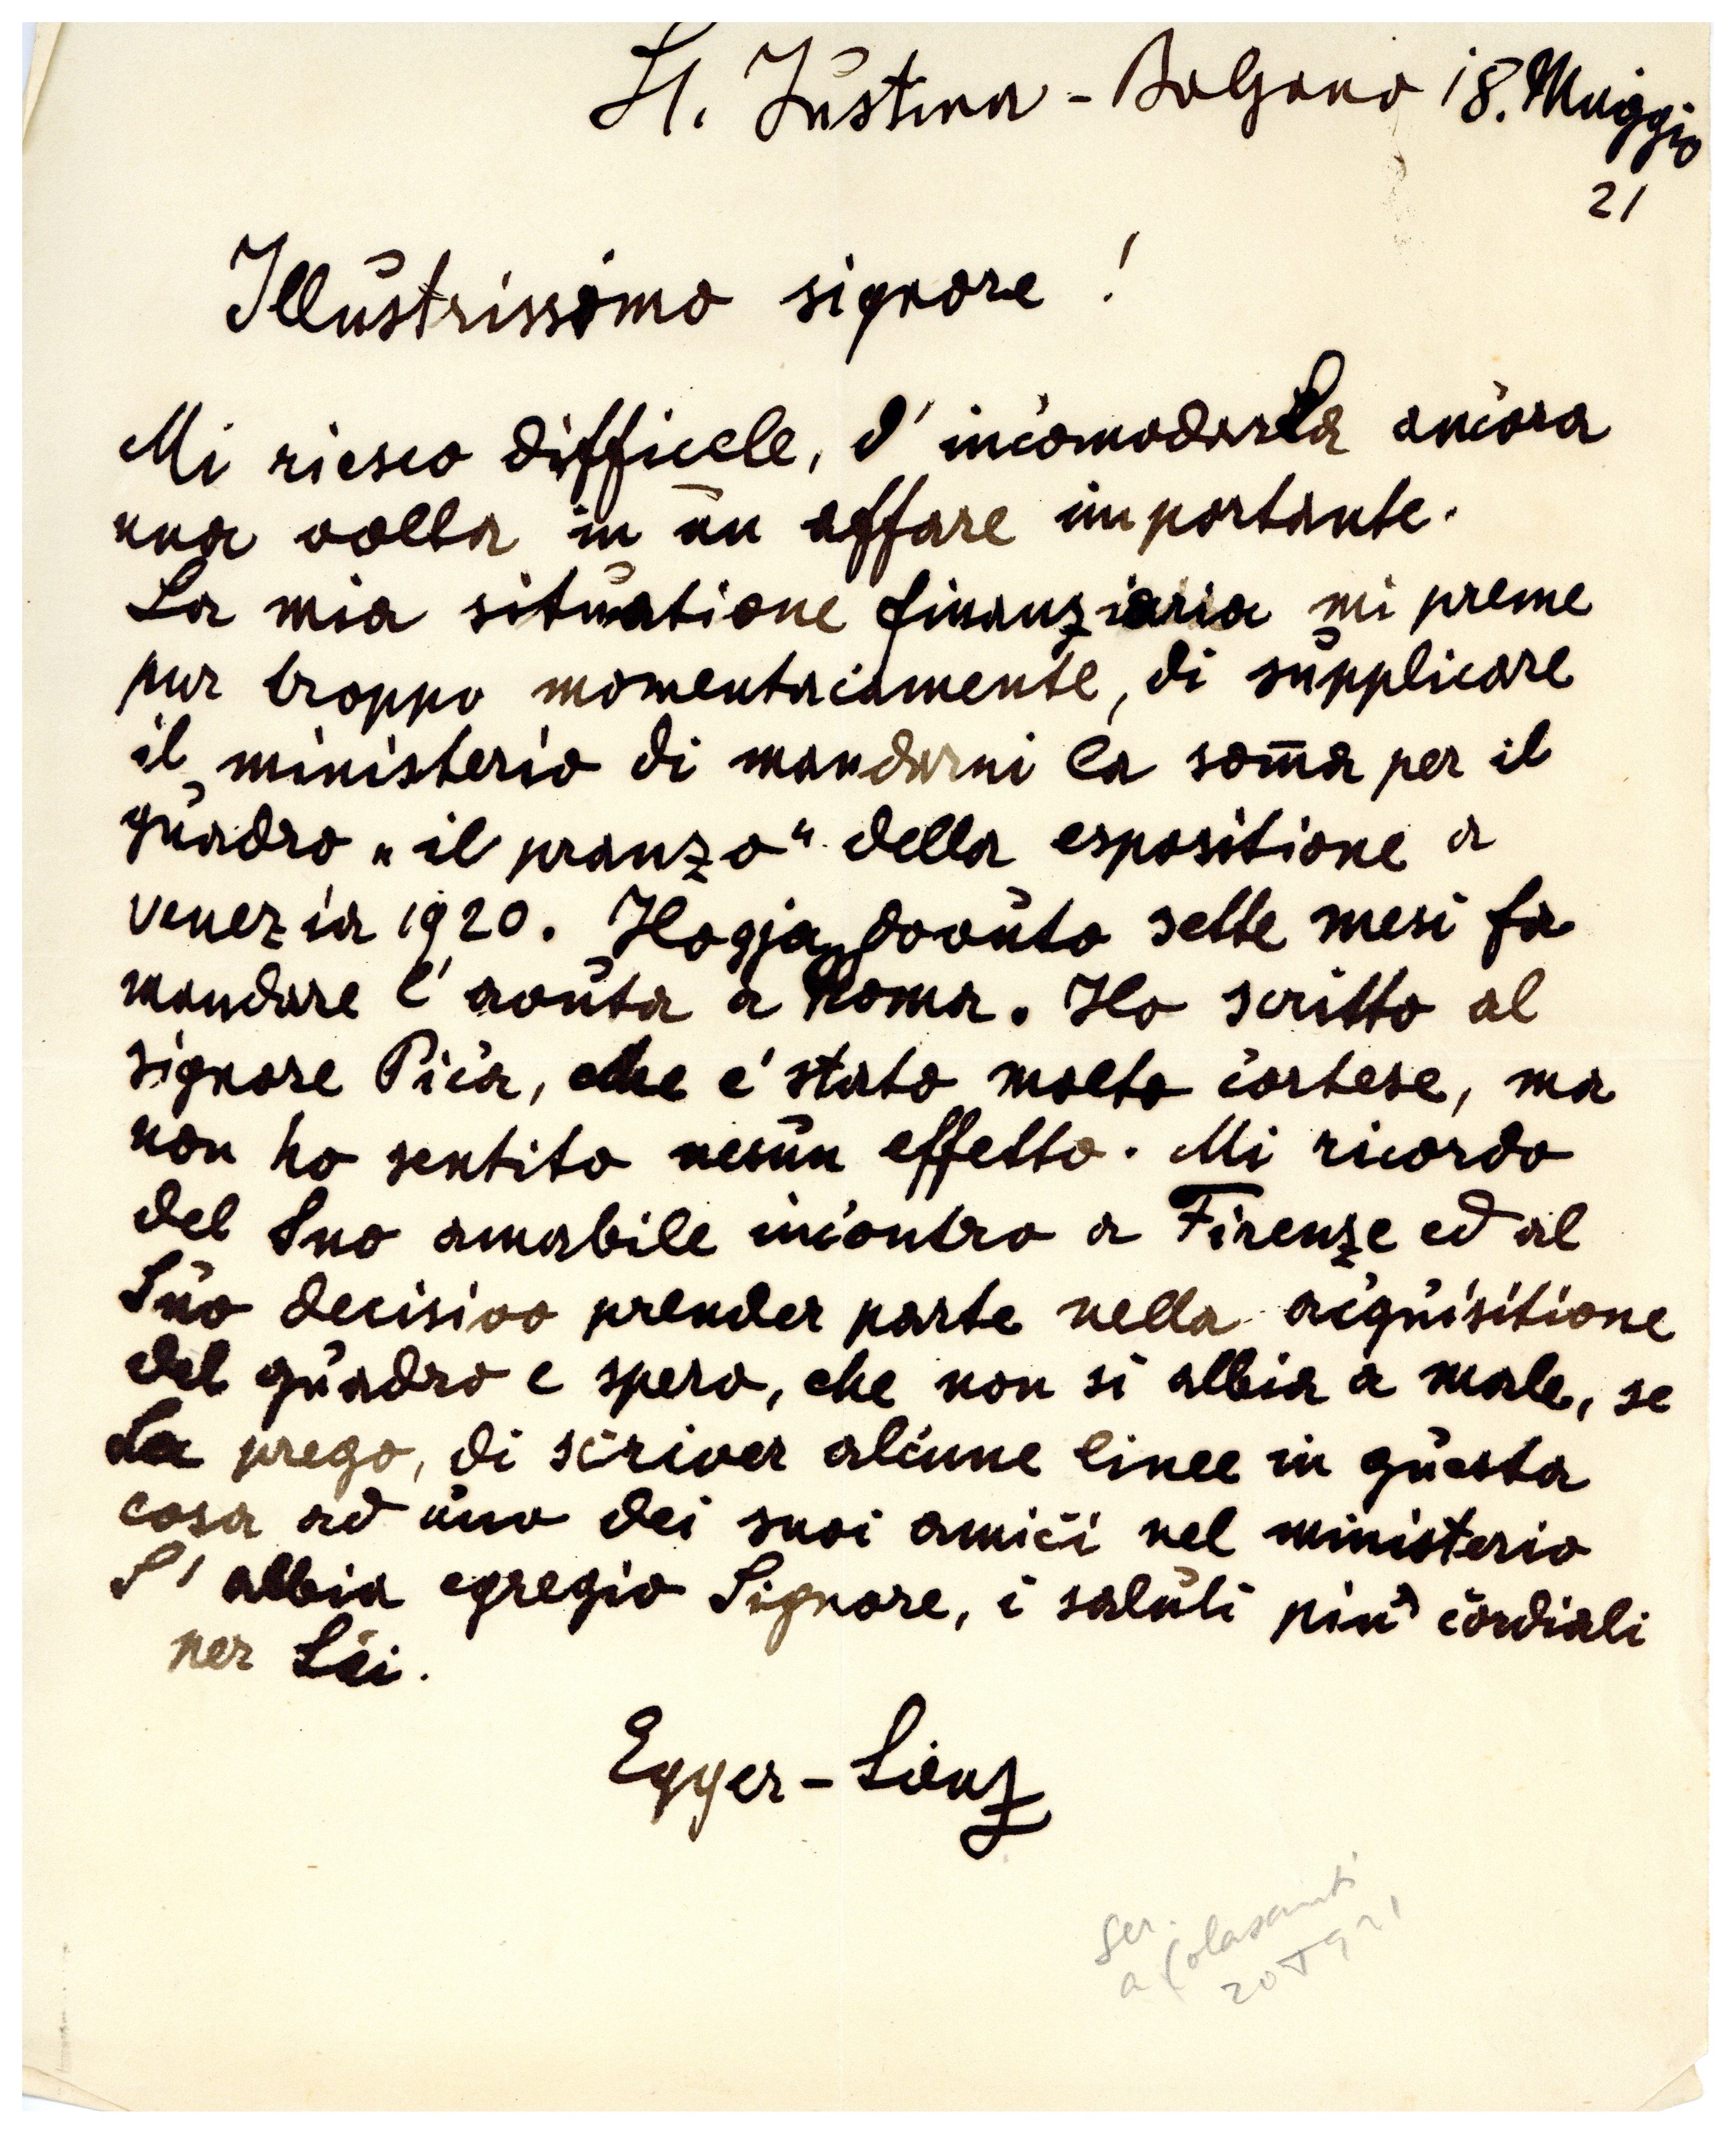 St. Justina - Bolzano 18. Maggio
21
Illustrissimo signore!
Mi riesco difficele, d'incomodarLa ancora
una volta in un affare importante.
La mia situatione finanziaria mi preme
pur troppo momentaciamente, di supplicare
il ministerio di mandarmi la som̄a per il
quadro „il pranzo“ della espositione a
venezia 1920. Ho gja dovuto sette mesi fa
mandare l'avuta a Roma. Ho scritto al
signore Pica, che e' stato molto cortese, ma
non ho sentito nesun effetto. Mi ricordo
del Suo amabile incontro a Firenze ed al
Suo decisivo prender parte nella acquisitione
del quadro e spero, che non si abbia a male, se
La prego, di scriver alcune linee in questa
cosa ad uno dei suoi amici nel ministerio
S'abbia egregio Signore, i saluti piu' cordiali
per Lei.
Egger-Lienz
a Colasanti
20 V 921